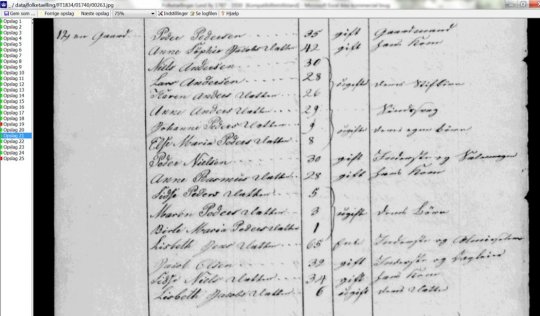 ../ data/folketaelling/FT1834/01746/00263.jpg
Folketællinger Lund By 1787 - 1930 [Kompatibilitetstilstand] - Microsoft Word Ikke-kommerciel brug
Gem som ... Forrige opslag Næste opslag 75% Indstillinger Se logfilen Hjælp
Opslag 1
Opslag 2
Opslag 3
Opslag 4
Opslag 5
Opslag 6
Opslag 7
Opslag 8
Opslag 9
Opslag 10
Opslag 11
Opslag 12
Opslag 13
Opslag 14
Opslag 15
Opslag 16
Opslag 17
Opslag 18
Opslag 19
Opslag 20
Opslag 21
Opslag 22
Opslag 23
Opslag 24
Opslag 25
en Gaard Peder Pedersen 35 gift Gaardmand
Anne Sophie Jacobs Datter 42 gift hans Kone
Niels Andersen 30
Lars Andersen 28
Karen Anders Datter 26 ugift deres
Anne Anders Datter 29
Johanne Peders Datter 9
Else Maria Peders Datter 8 ugift deres egne Børn
Peder Nielsen 30 gift Inderster og
Anne Rasmus Datter 28 gift hans Kone
Sidse Peders Datter 5
Maren Peders Datter 3 ugift deres Børn
Birte Maria Peders Datter 1
Lisbeth Datter 65 Enke Inderster og
Jacob Olsen 39 gift Inderster og Daglejer
Sidse Niels Datter 34 gift hans Kone
Lisbeth Jacobs Datter 6 ugift deres Datter